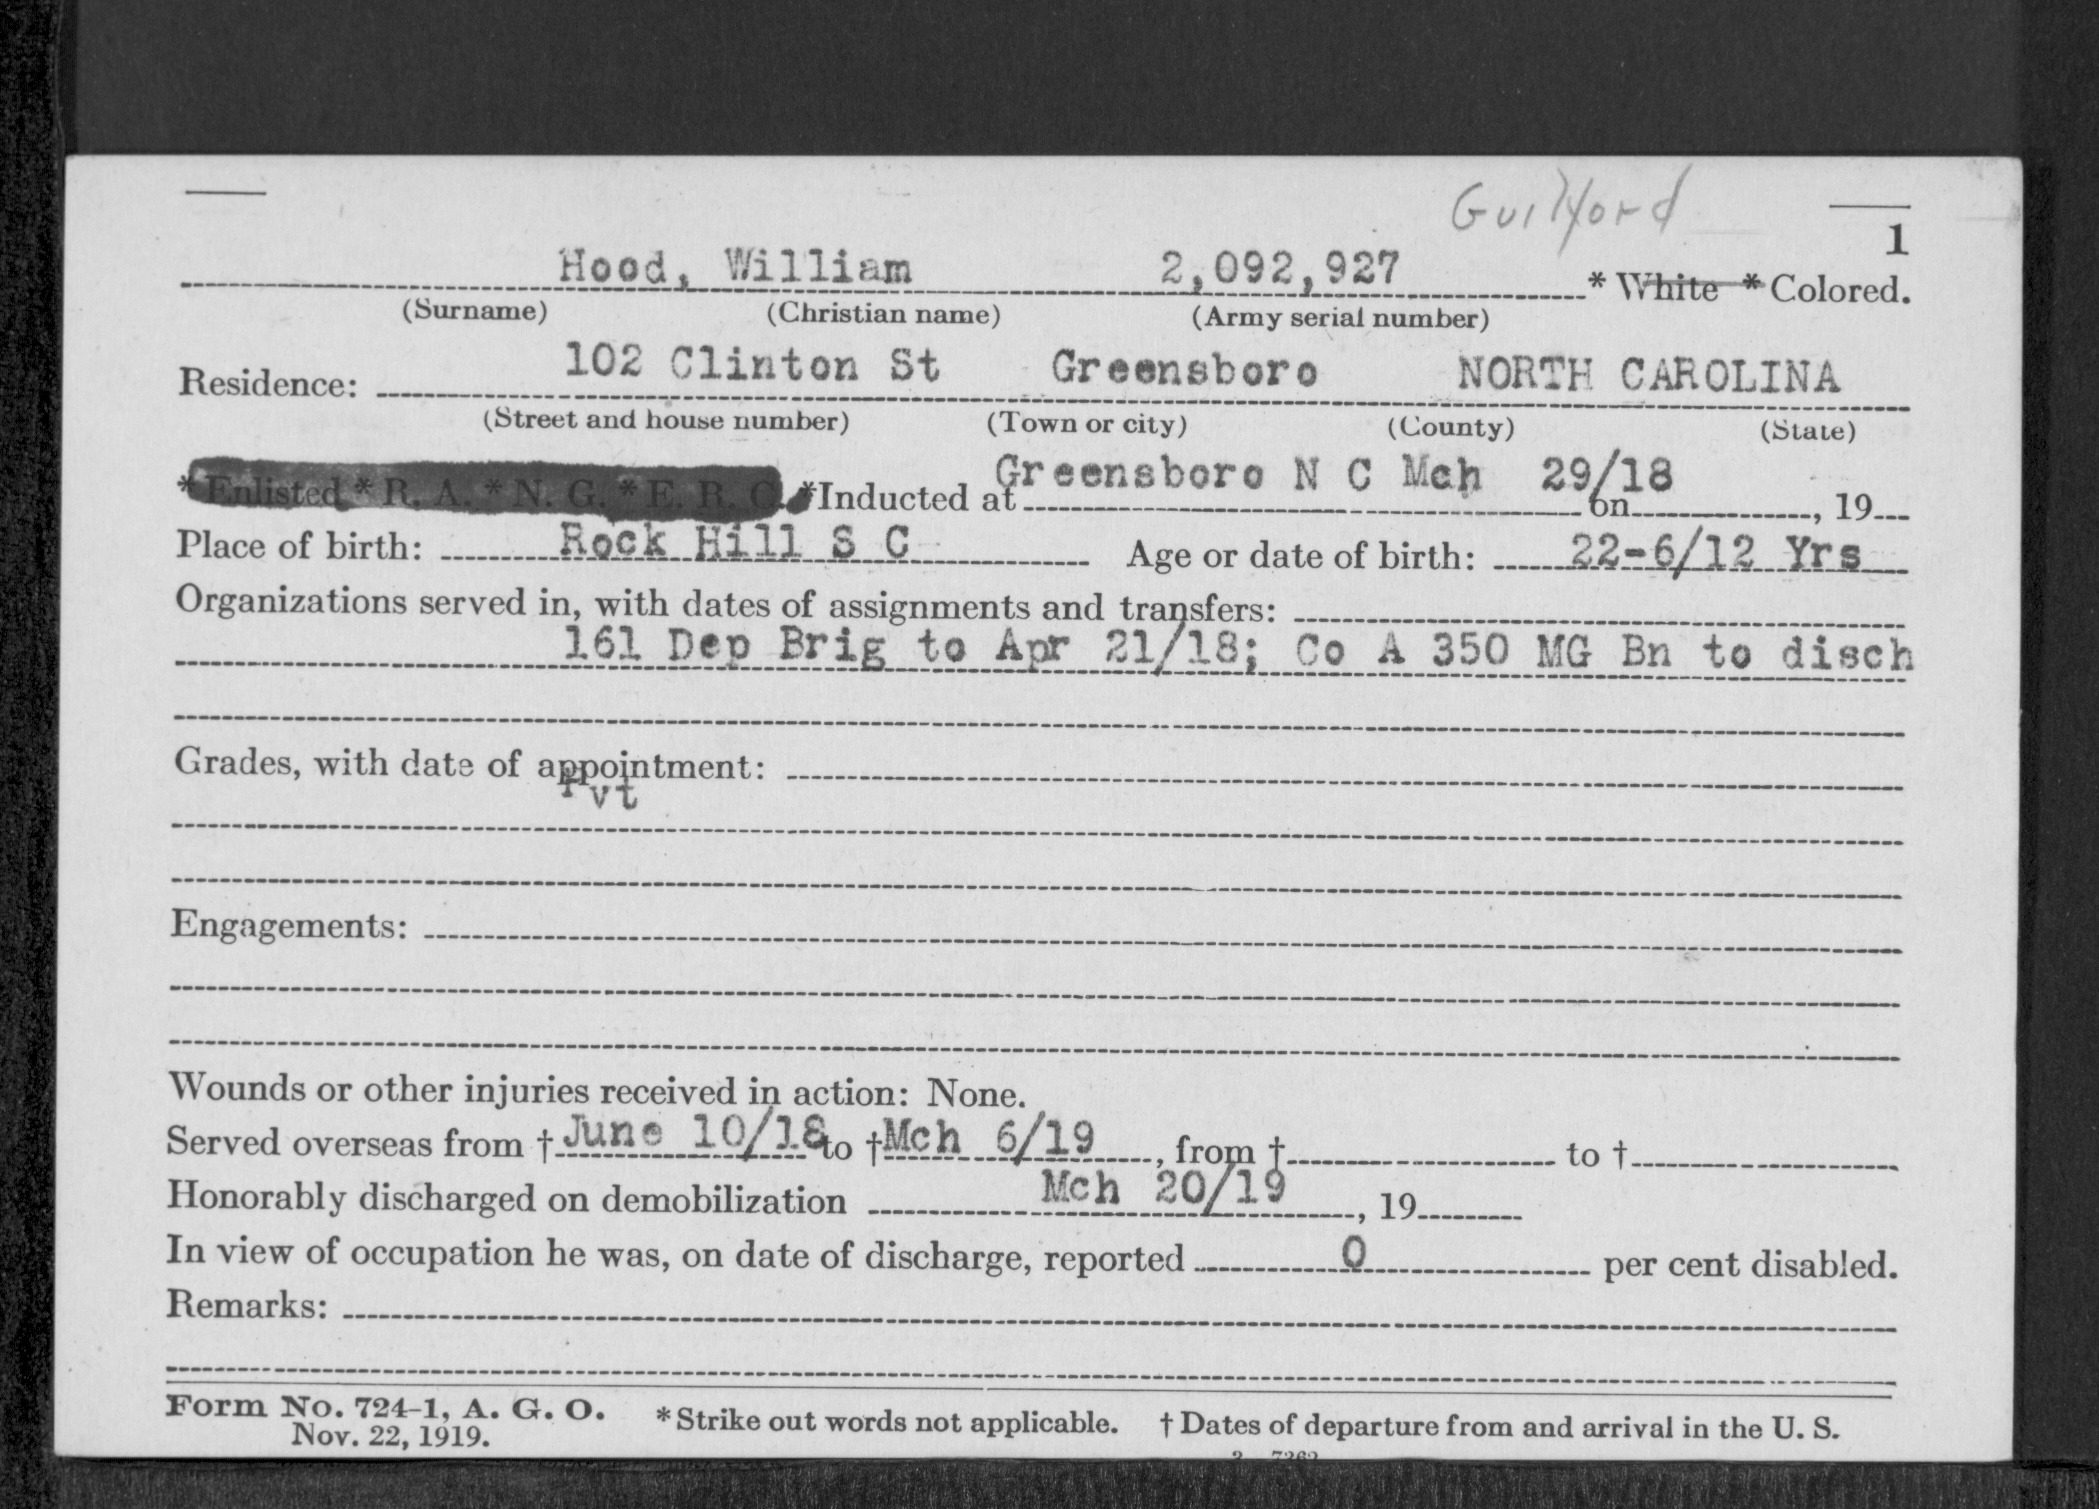 Guilford
1
Hood, William 2,092,927 * White * Colored.
(Surname) (Christian name) (Army serial number)
102 Clinton St Greensboro NORTH CAROLINA
Residence:
(Street and house number) (Town or city) (County) (State)
Greensboro N C Mch 29/18
* Enlisted * R. A. * N. G. * E. R. C. *Inducted at on , 19
Place of birth: Rock Hill S C Age or date of birth: 22-6/12 Yrs
Organizations served in, with dates of assignments and transfers:
161 Dep Brig to Apr 21/18; Co A 350 MG Bn to disch
Grades, with date of appointment:
Pvt
Engagements:
Wounds or other injuries received in action: None.
Served overseas from † June 10/18 to † Mch 6/19 , from † to †
Honorably discharged on demobilization Mch 20/19 , 19
In view of occupation he was, on date of discharge, reported 0 per cent disabled.
Remarks:
Form No. 724-1, A. G. O. * Strike out words not applicable. † Dates of departure from and arrival in the U. S.
Nov. 22, 1919.